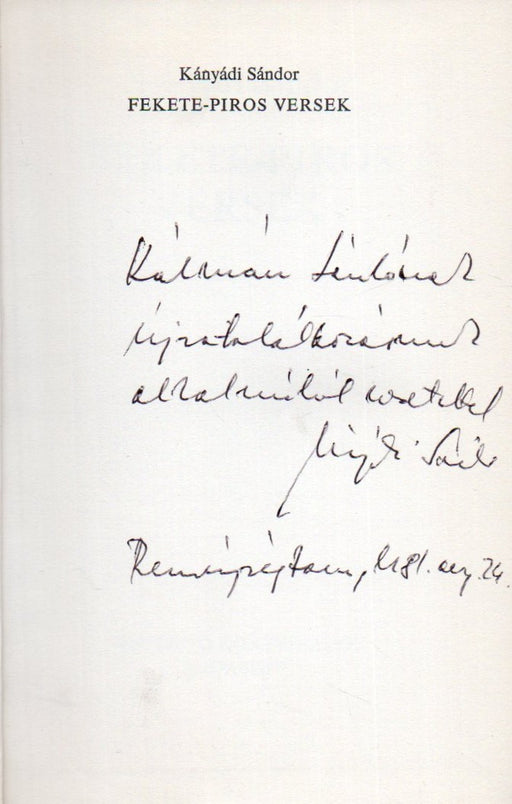 Kányádi Sándor
FEKETE-PIROS VERSEK
Kálmán Lászlónak
újratalálkozásunk
alkalmából szeretettel
Kányádi Sándor
1981. aug. 24.